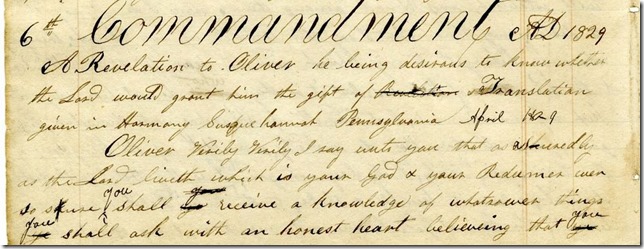 6th Commandment AD 1829
A Revelation to Oliver he being desirous to know whether
the Lord would grant him the gift of & Translation
given in Harmony Susquehannah Pennsylvania April 1829
Oliver Verily Verily I say unto you that as assuredly
as the Lord liveth which is your God & your Redeemer even
so sure you shall receive a knowledge of whatsoever things
you shall ask with an honest heart believing that you